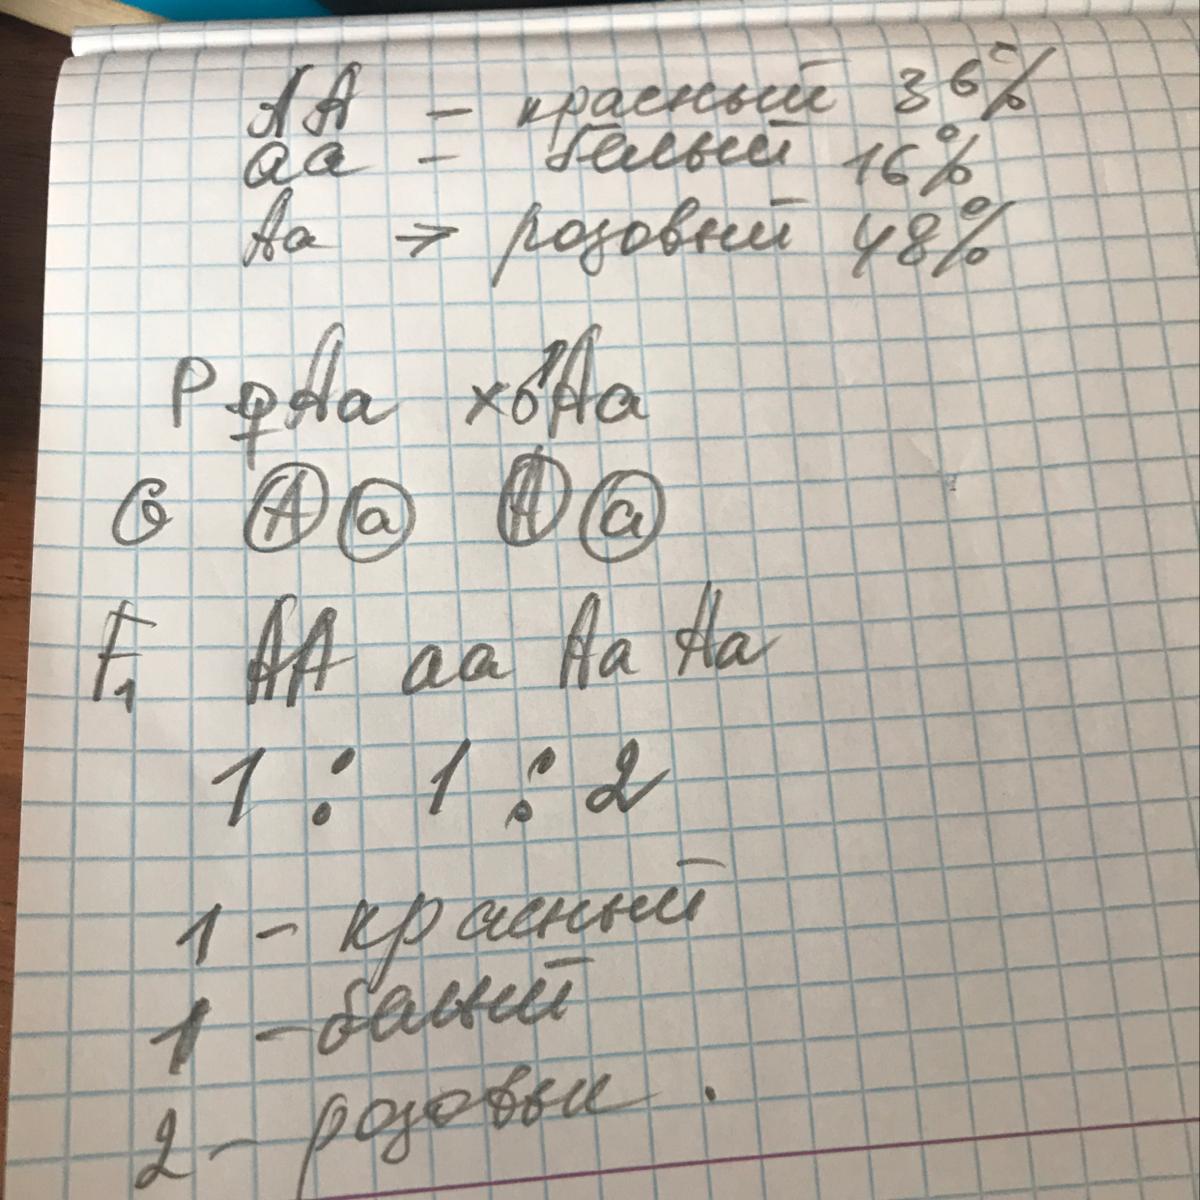 AA - красный 36%
aa - белый 16%
Aa → розовый 48%
P ♀Aa x♂Aa
G A a A a
F1 AA aa Aa Aa
1 : 1 : 2
1 - красный
1 - белый
2 - розовы .